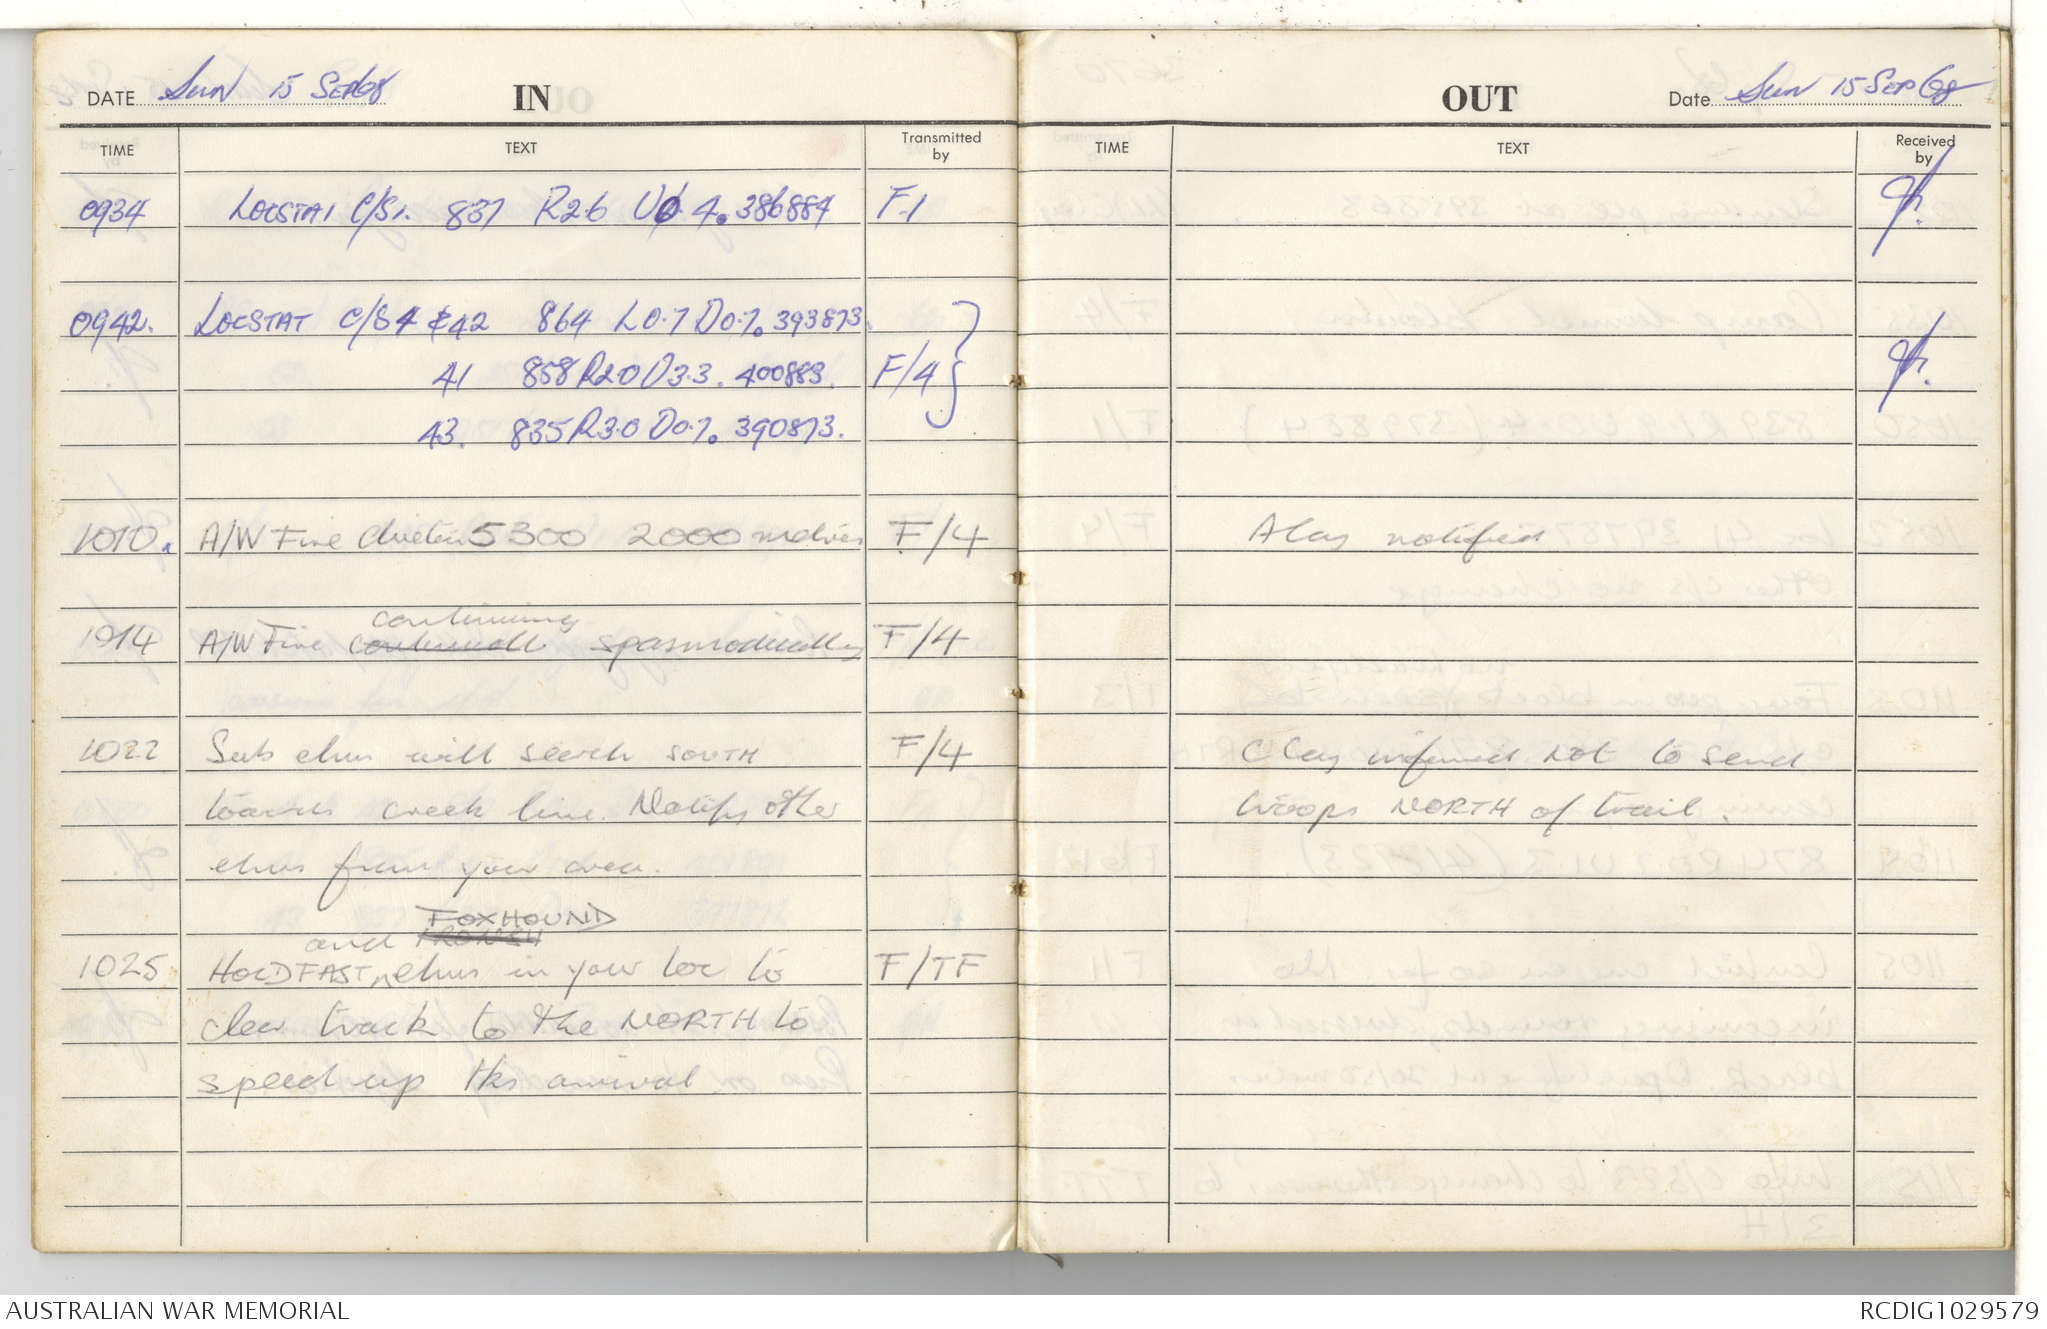 DATE Sun 15 Sep 68 IN
TIME TEXT Transmitted by
0934 LOCSTAT C/S 1. 837 R2.6 U0.4. 386884 F.1
0942. LOCSTAT C/S 4 & 42 864 L0.7 D0.7. 393873.
41 858 R2.0 D3.3. 400883. F/4
43. 835 R3.0 D0.7. 390873.
1010. A/W Fire direction 5300 2000 metres F/4
continuing
1014 A/W Fire spasmodically F/4
1022 Sub c/sns will search SOUTH F/4
towards creek line. Notify other
c/sns from your area.
FOXHOUND
and
1025 HOLDFAST c/sns in your loc to F/TF
clear track to the NORTH to
speed up tks arrival
OUT Date Sun 15 Sep 68
TIME TEXT Received by
A Coy notified
C Coy informed not to send
troops NORTH of trail.
AUSTRALIAN WAR MEMORIAL RCDIG1029579